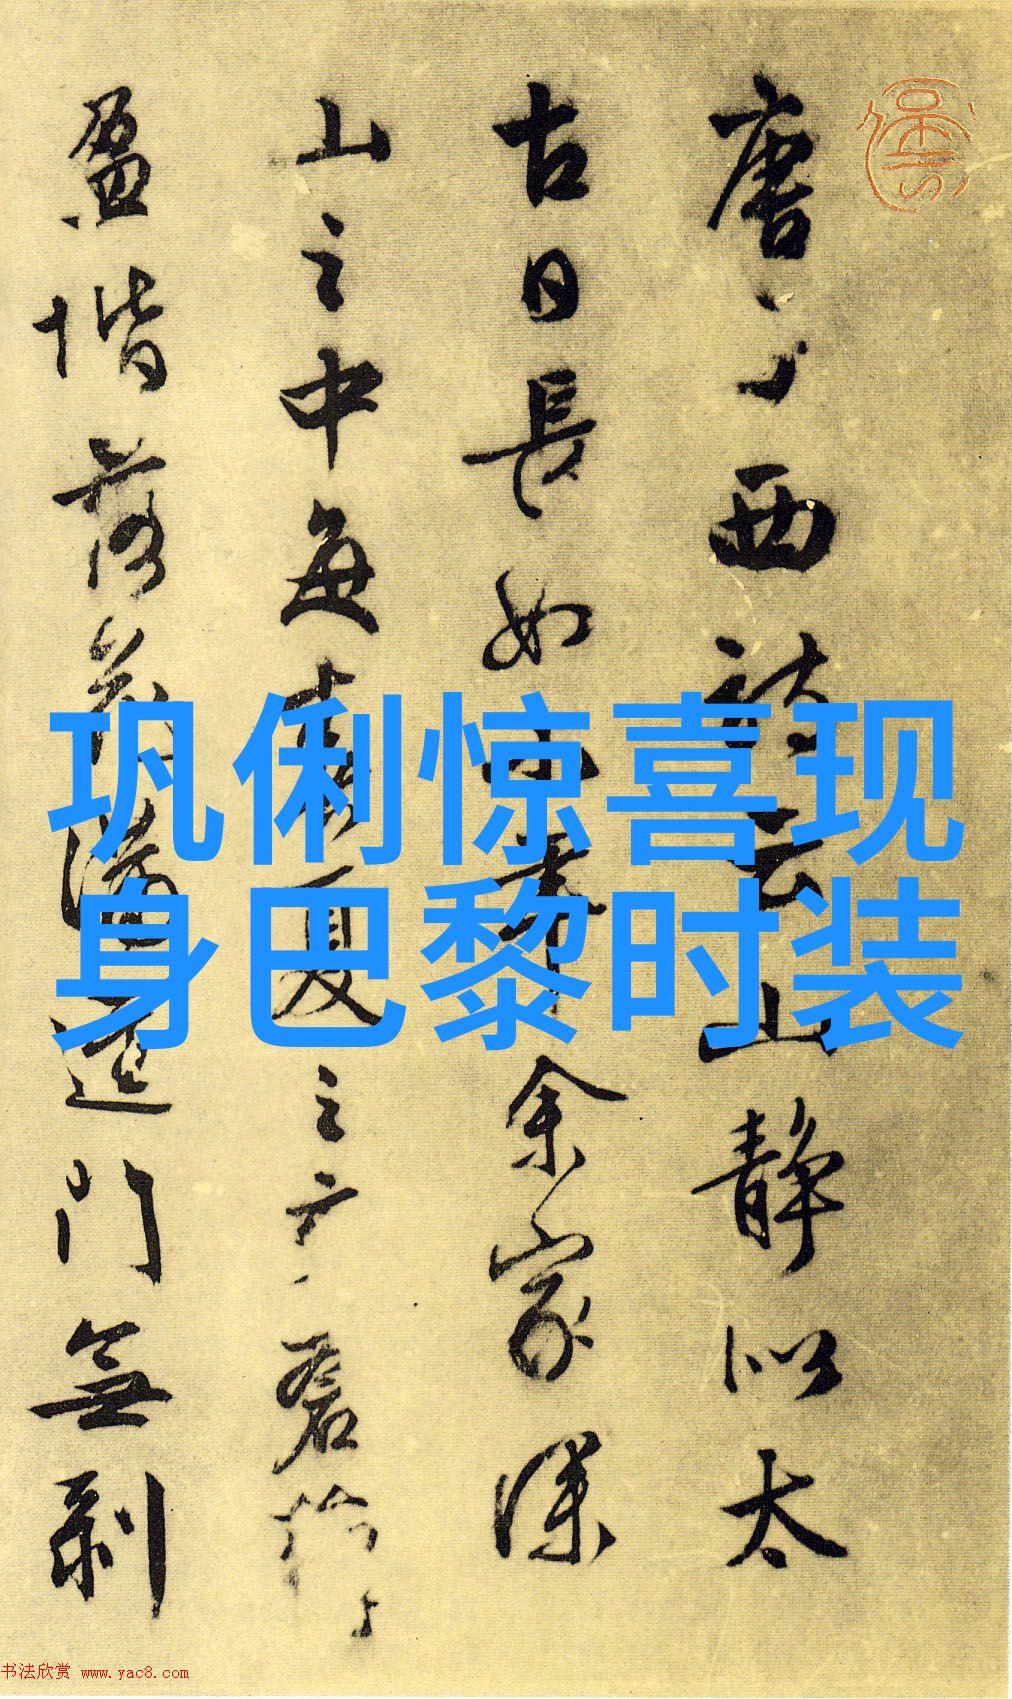 唐子西詩云山静似太
古日長如小年余家深
山之中每春夏之交蒼蘚
盈堦落花滿逕門無剥
巩俐惊喜现
身巴黎时装
书法欣赏 www.yac8.com